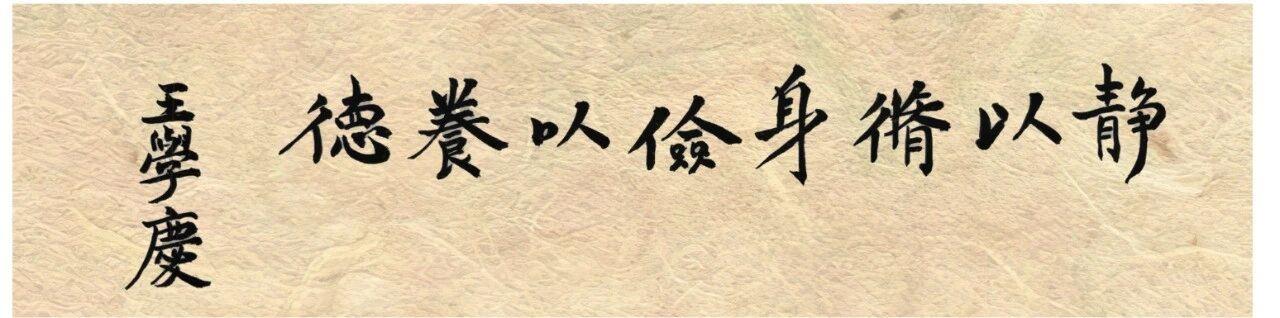 静以脩身儉以養德
王學慶